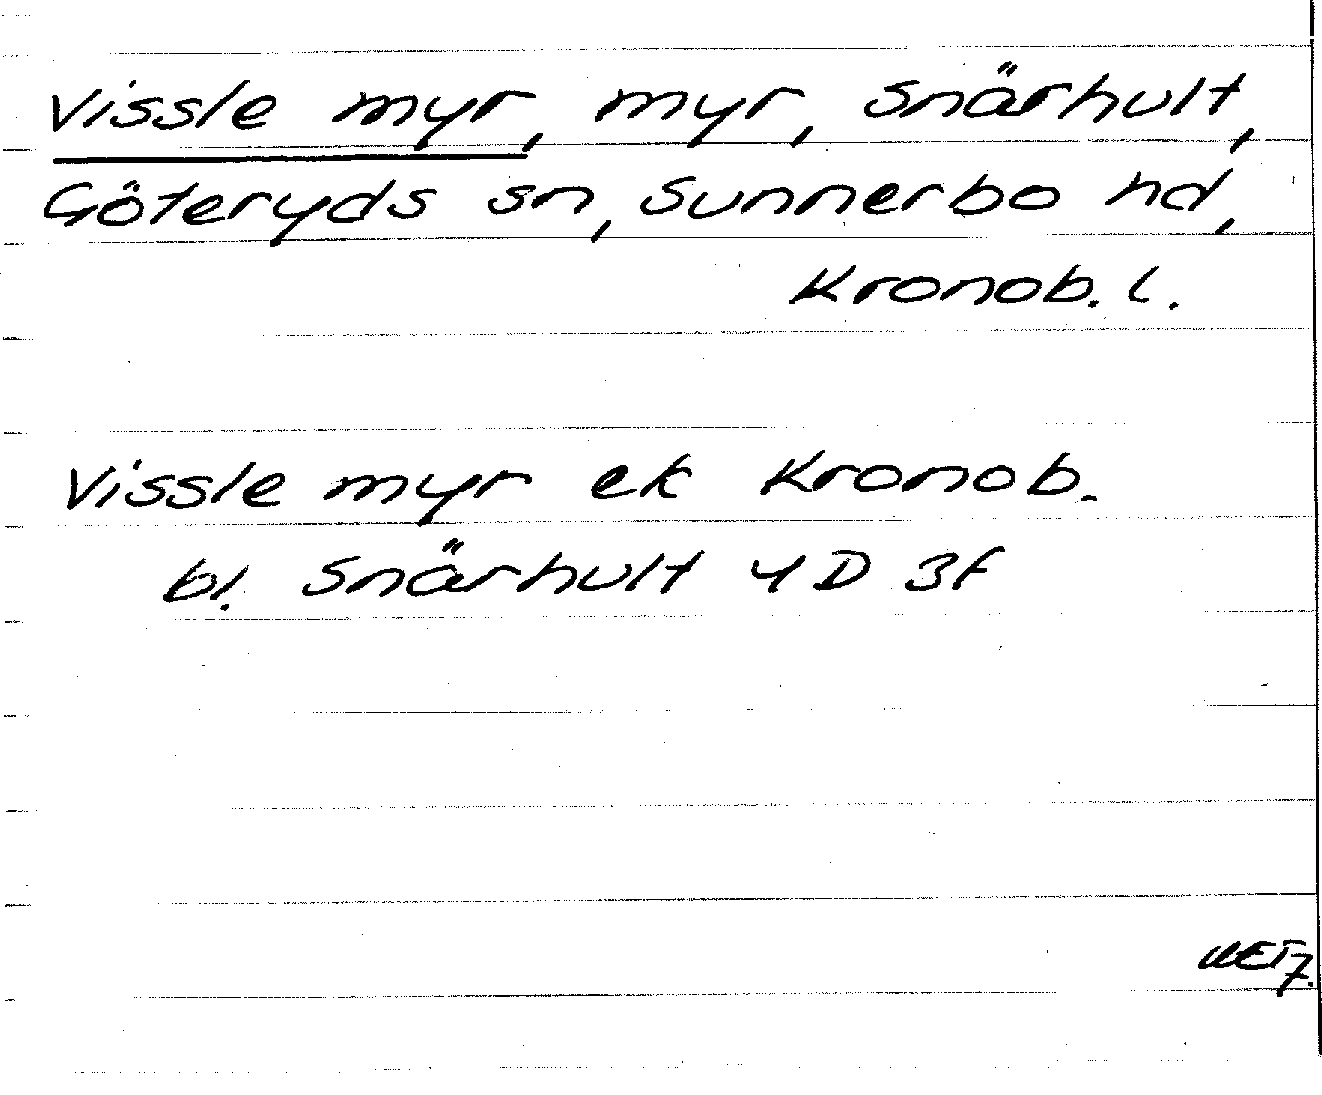 Vissle myr, myr, Snärhult,
Göteryds sn, Sunnerbo hd,
Kronob. l.
Vissle myr ek Kronob.
bl. Snärhult 4D 3f